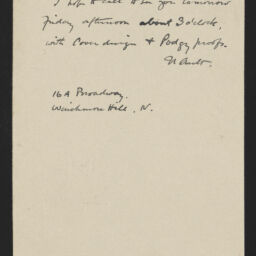 I hope to call & see you tomorrow
Friday afternoon about 3 o'clock,
with Cover design & Podgy proofs.
N Ault.
16A Broadway.
Winchmore Hill, N.